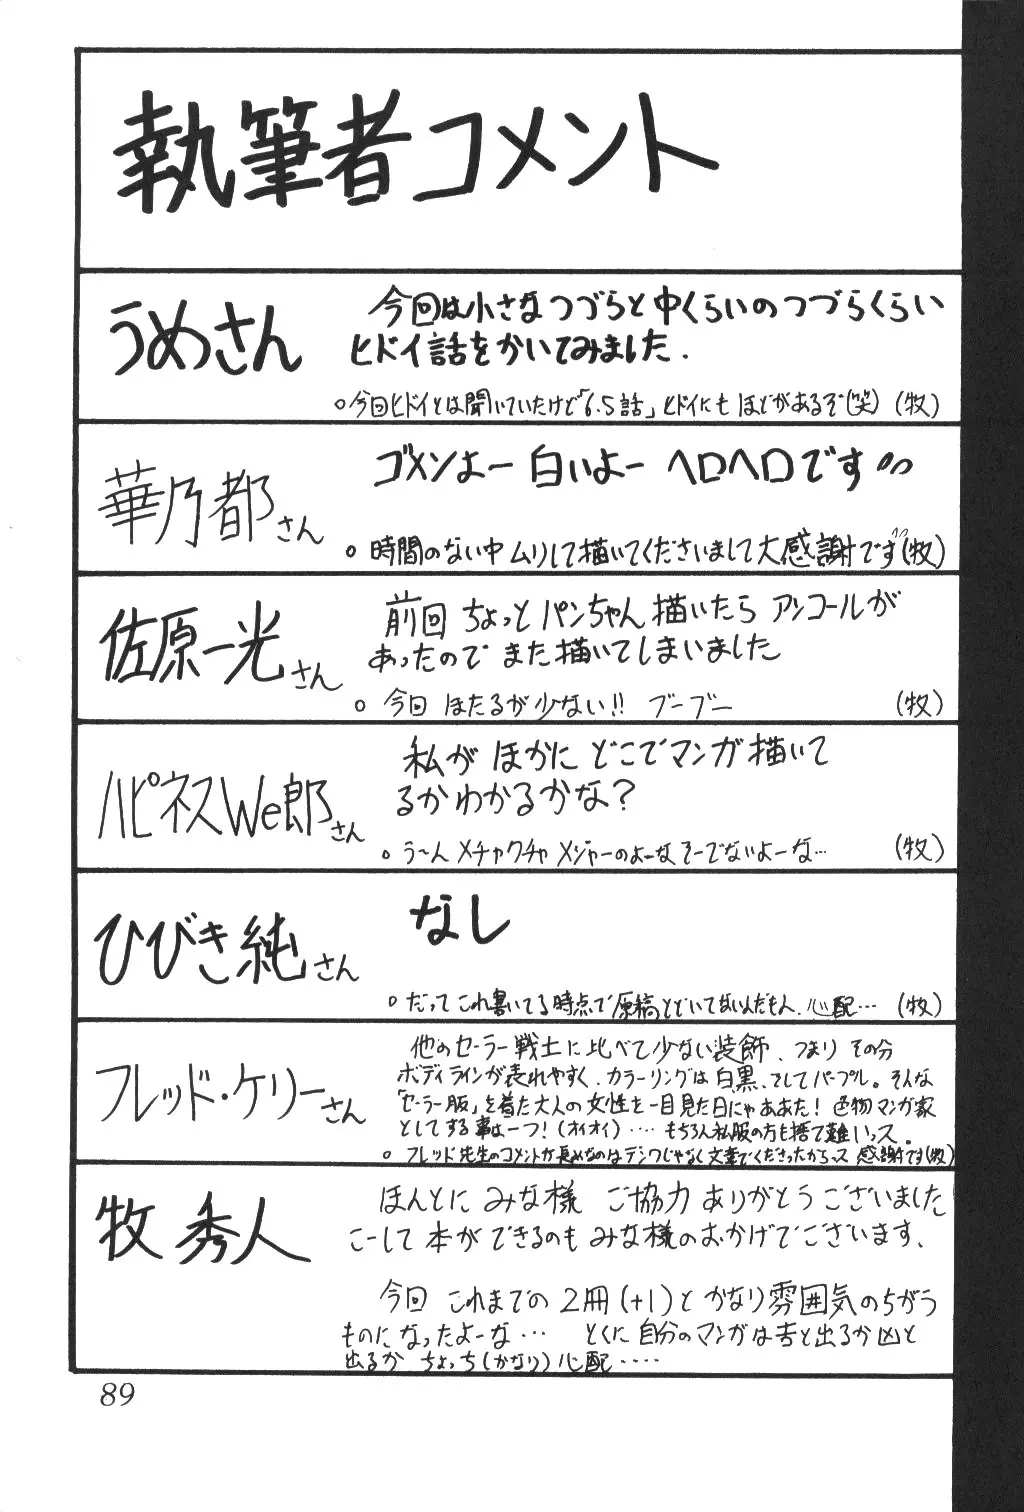 執筆者コメント
うめさん
今回は小さなつづらと中くらいのつづらくらい
ヒドイ話をかいてみました.
○今回ヒドイとは聞いていたけど「6.5話」ヒドイにもほどがあるぞ(笑) (牧)
華乃都さん
ゴメンよー 白いよー ヘロヘロです
○ 時間のない中ムリして描いてくださいまして大感謝です(牧)
佐原一光さん
前回 ちょっと パンちゃん 描いたら アンコールが
あったので また 描いてしまいました
○ 今回 ほたるが少ない!! ブーブー (牧)
ハピネスWe郎さん
私が ほかに どこでマンガ描いて
るかわかるかな?
○ う〜ん メチャクチャ メジャーのよーな そーでないよーな… (牧)
ひびき純さん
なし
○ だって これ書いてる時点で原稿とどいてないんだもん. 心配… (牧)
フレッド・ケリーさん
他のセーラー戦士に比べて少ない装飾、つまり その分
ボディラインが表れやすく、カラーリングは白黒、そしてパープル。そんな
「セーラー服」を着た大人の女性を一目見た日にゃああた! 色物マンガ家
としてする事は一つ!(オイオイ)…. もちろん私服の方も捨て難いっス。
○ フレッド先生のコメントが長めなのはデンワじゃなく文章でくださったからっス 感謝です(牧)
牧 秀人
ほんとに みな様 ご協力 ありがとうございました
こーして 本ができるのも みな様のおかげでございます、
今回 これまでの 2冊(+1)と かなり雰囲気のちがう
ものになったよーな… とくに自分のマンガは吉と出るか凶と
出るか ちょっち(かなり)心配….
89